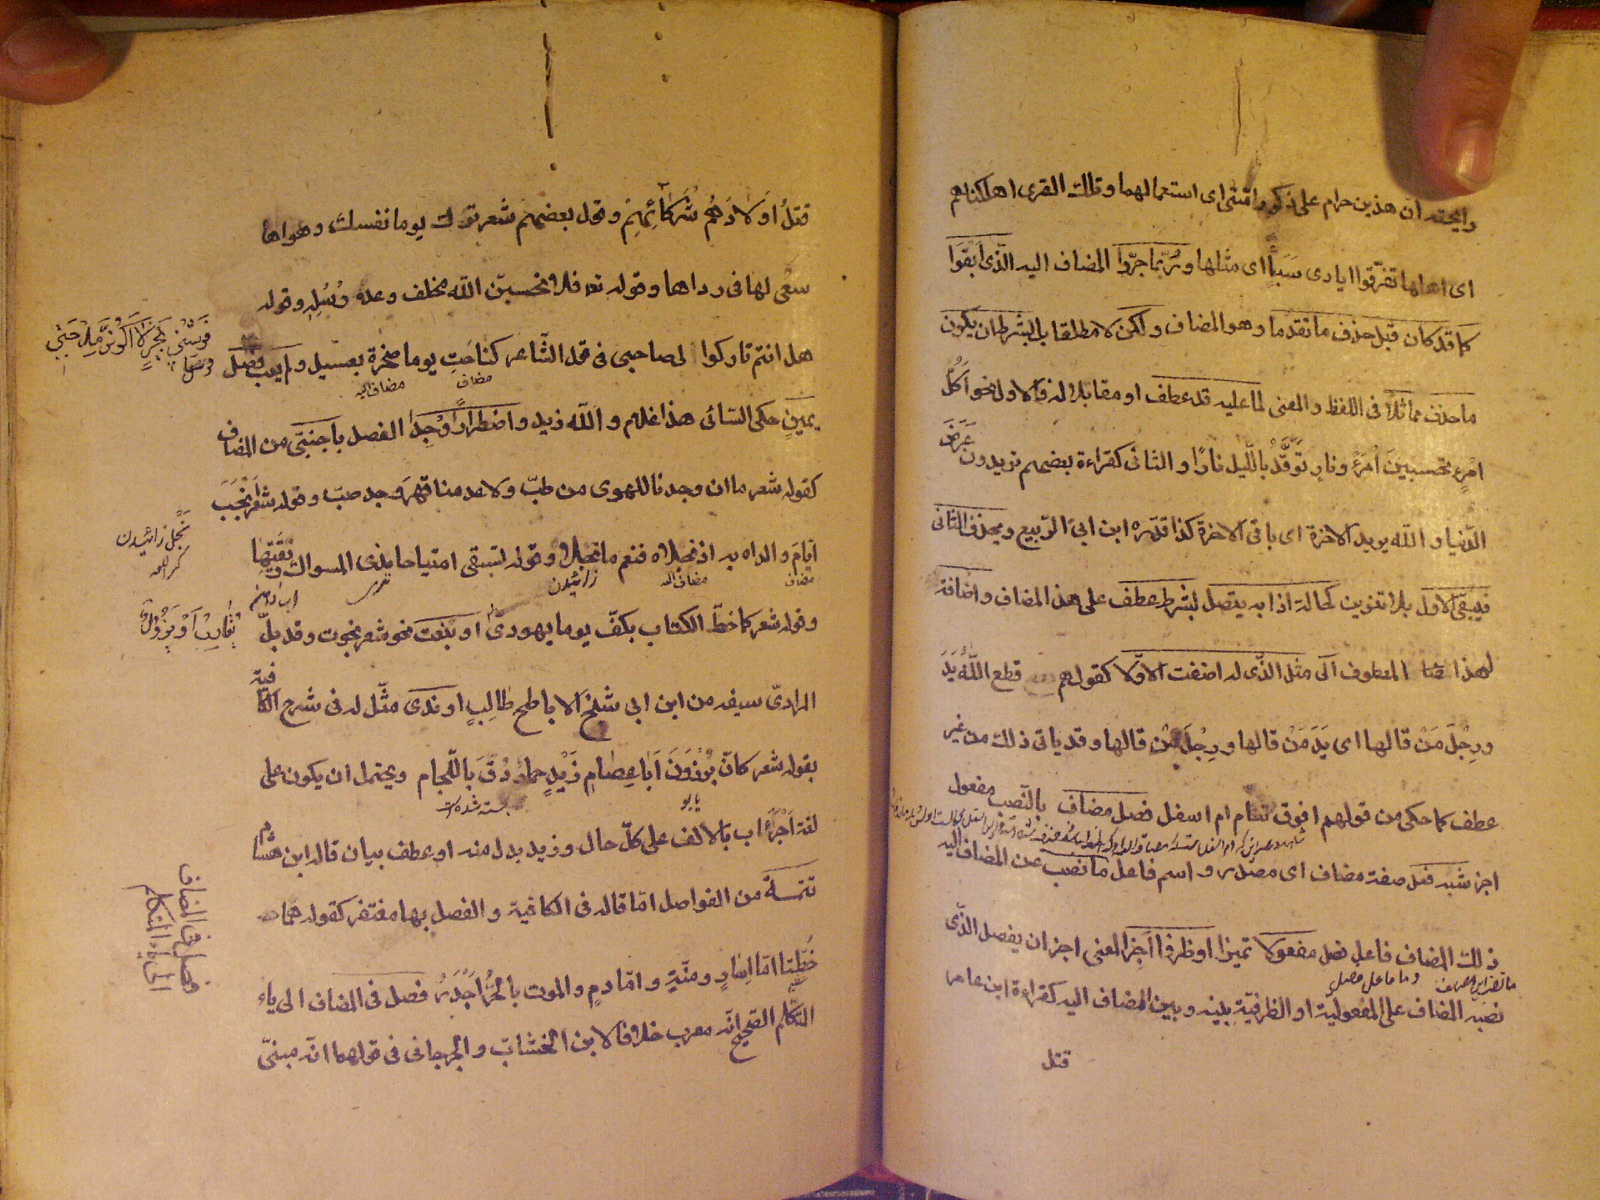 ان هذين حرام على ذكور امتى اى استعمالهما وتلك القرى اهلكناهم
اى اهلها تفرّقوا ايادى سَبَأ اى مثلها وربّما جرّوا المضاف اليه الّذى ابقَوا
كما قد كان قبل حذف ما تقدما وهو المضاف ولكن لا مطلقا بل بشرط ان يكون
ما حذف مماثلا فى اللفظ والمعنى لما عليه قد عطف او مقابلا له فالاول نحو اَكُلَّ
امرءٍ تحسبين امرءً ونارٍ تَوَقَّدُ باللّيل نارًا والثانى كقراءة بعضهم تريدون عَرَضَ
الدّنيا والله يريد الاخرة اى باقى الاخرة كذا قدّره ابن ابى الرّبيع ويحذف الثّانى
فيبقى الاول بلا تنوين كحاله اذا به يتصل بشرط عطف على هذا المضاف واضافة
لهذا المعطوف الى مثل الذّى له اضفت الاوّلا كقولهم قطع اللّهُ يَدَ
ورِجْلَ مَنْ قالها اى يَدَ مَنْ قالها ورِجْلَ مَنْ قالها وقد ياتى ذلك من غير
عطف كما حكى من قولهم افوق تنام ام اسفل فصل مضاف بالنّصب مفعول
اجز شبه فعل صفة مضاف اى مصدر واسم فاعل ما نصب عن المضاف اليه
ذلك المضاف فاعل فصل مفعولا تميزا او ظرفا اَجِز المعنى اجز ان يفصل الذّى
نصبه المضاف على المفعولية او الظرفيّة بينه وبين المضاف اليه كقراءة ابن عامر
قتل
قتلُ اولادَهُم شُرَكآئِهِمْ وقول بعضهم شعر ترك يوما نفسك وهواها
سعى لها فى رداها وقوله تعا فلا تحسبنّ اللّه مخلف وعده رُسُلِه وقوله
هل انتم تاركوا لى صاحبى فى قول الشّاعر كناحتِ يوما صخرةٍ بعسيل ولم يعب فصل
مضاف
مضاف اليه
يمينٍ حكى الكسائى هذا غلام والله زيد واضطرارًا وُجِدا الفصل باجنبىّ من المضاف
كقوله شعر ما ان وجدنا للهوى من طبّ ولا عدمنا قهرَ وجد صبّ وقوله شعر اَنْجَبَ
ايّامَ والداه به اذ نجلاه فنعم ما نجلا وقوله تسقى امتياحا ندى المسواك ريقتِها
مضاف
مضاف اليه
زائيدن
وقوله شعر كما خطّ الكتاب بكفّ يوما يهودىّ او بنعت نحو شعر نجوت وقد بلّ
المرادىّ سيفه من ابن ابى شيخ الاباطح طالبٍ او ندى مثّل له فى شرح الكافية
بقوله شعر كانّ بِرْذَوْنَ اَبا عِصامٍ زَيْدٍ حمارٌ دُقَّ باللّجام ويحتمل ان يكون على
يابو
بسته شده است
لغة اجراء اب بالالف على كلّ حال وزيد بدل منه او عطف بيان قاله ابن هشام
تتمّة من الفواصل امّا قاله فى الكافية والفصل بها مغتفر كقوله هما
خُطّتا امّا اِسارٍ ومنّةٍ وامّا دمٍ والموت بالحُرِّ اَجْدَرُ فصل فى المضاف الى ياء
المتكلّم الصّحيح انّه معرب خلافا لابن الخشّاب والجرجانى فى قولهما انّه مبنىّ
نجل زائيدن
فصل فى المضاف
الى ياء المتكلم